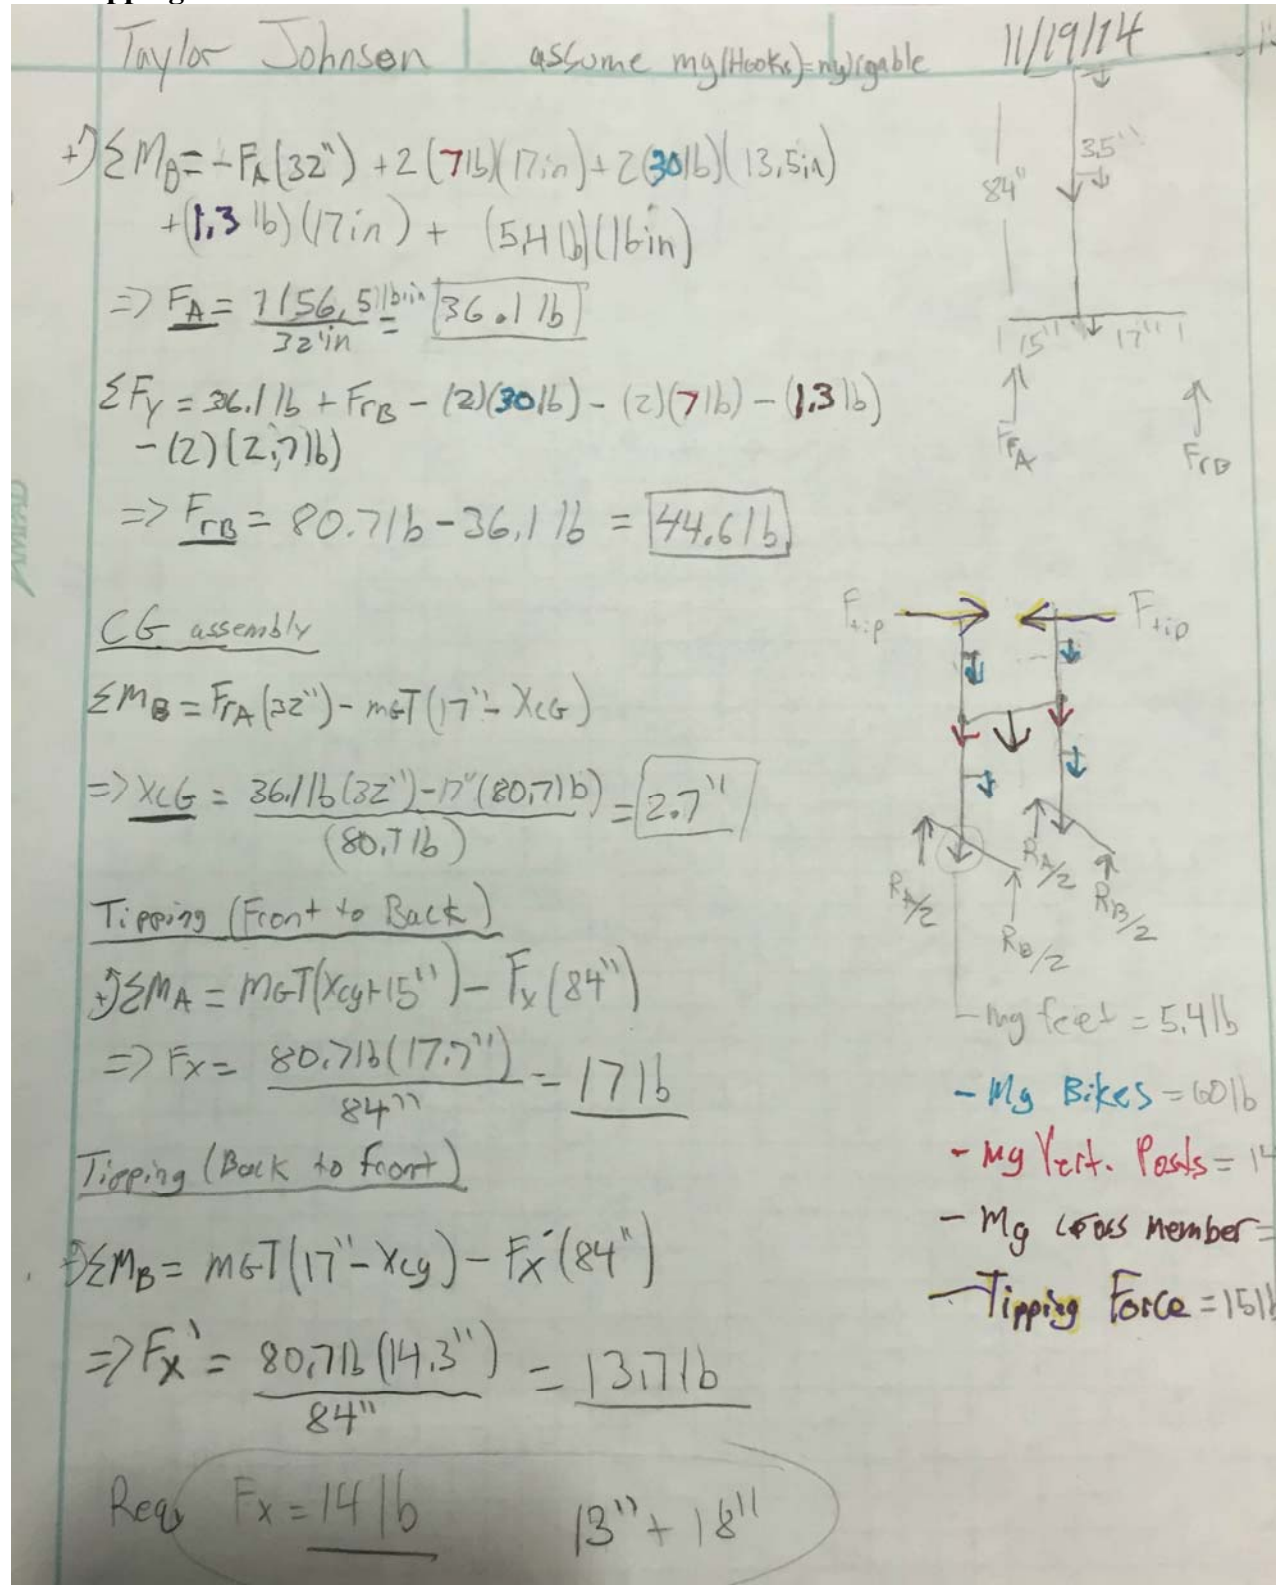 Taylor Johnson assume mg(Hooks)= 11/19/14
+) ΣM_B = -F_A(32") + 2(7lb)(17in) + 2(30lb)(13,5in)
+(1,3 lb)(17in) + (5,4 lb)(16in)
=> F_A = 1156,5 lb·in / 32 in = 36.1 lb
ΣF_Y = 36.1 lb + F_rB - (2)(30lb) - (2)(7lb) - (1.3lb)
- (2)(2,7lb)
=> F_rB = 80.7lb - 36.1 lb = 44.6 lb
84"
3.5"
15" 17"
F_rA F_rB
CG assembly
ΣM_B = F_rA(32") - mGT(17" - X_CG)
=> X_CG = 36.1lb(32") - 17"(80,7lb) / (80.7lb) = 2.7"
Tipping (Front to Back)
+) ΣM_A = mGT(X_cg+15") - F_x(84")
=> F_x = 80.7lb(17.7") / 84" = 17lb
Tipping (Back to front)
+) ΣM_B = mGT(17" - X_cg) - F_x'(84")
=> F_x' = 80,7lb(14.3") / 84" = 13.7lb
Req F_x = 14 lb 13" + 18"
F_tip F_tip
R_A/2 R_B/2 R_A/2 R_B/2
- mg feet = 5.4lb
- Mg Bikes = 60lb
- Mg Vert. Posts = 14
- Mg cross Member =
- Tipping Force = 15lb